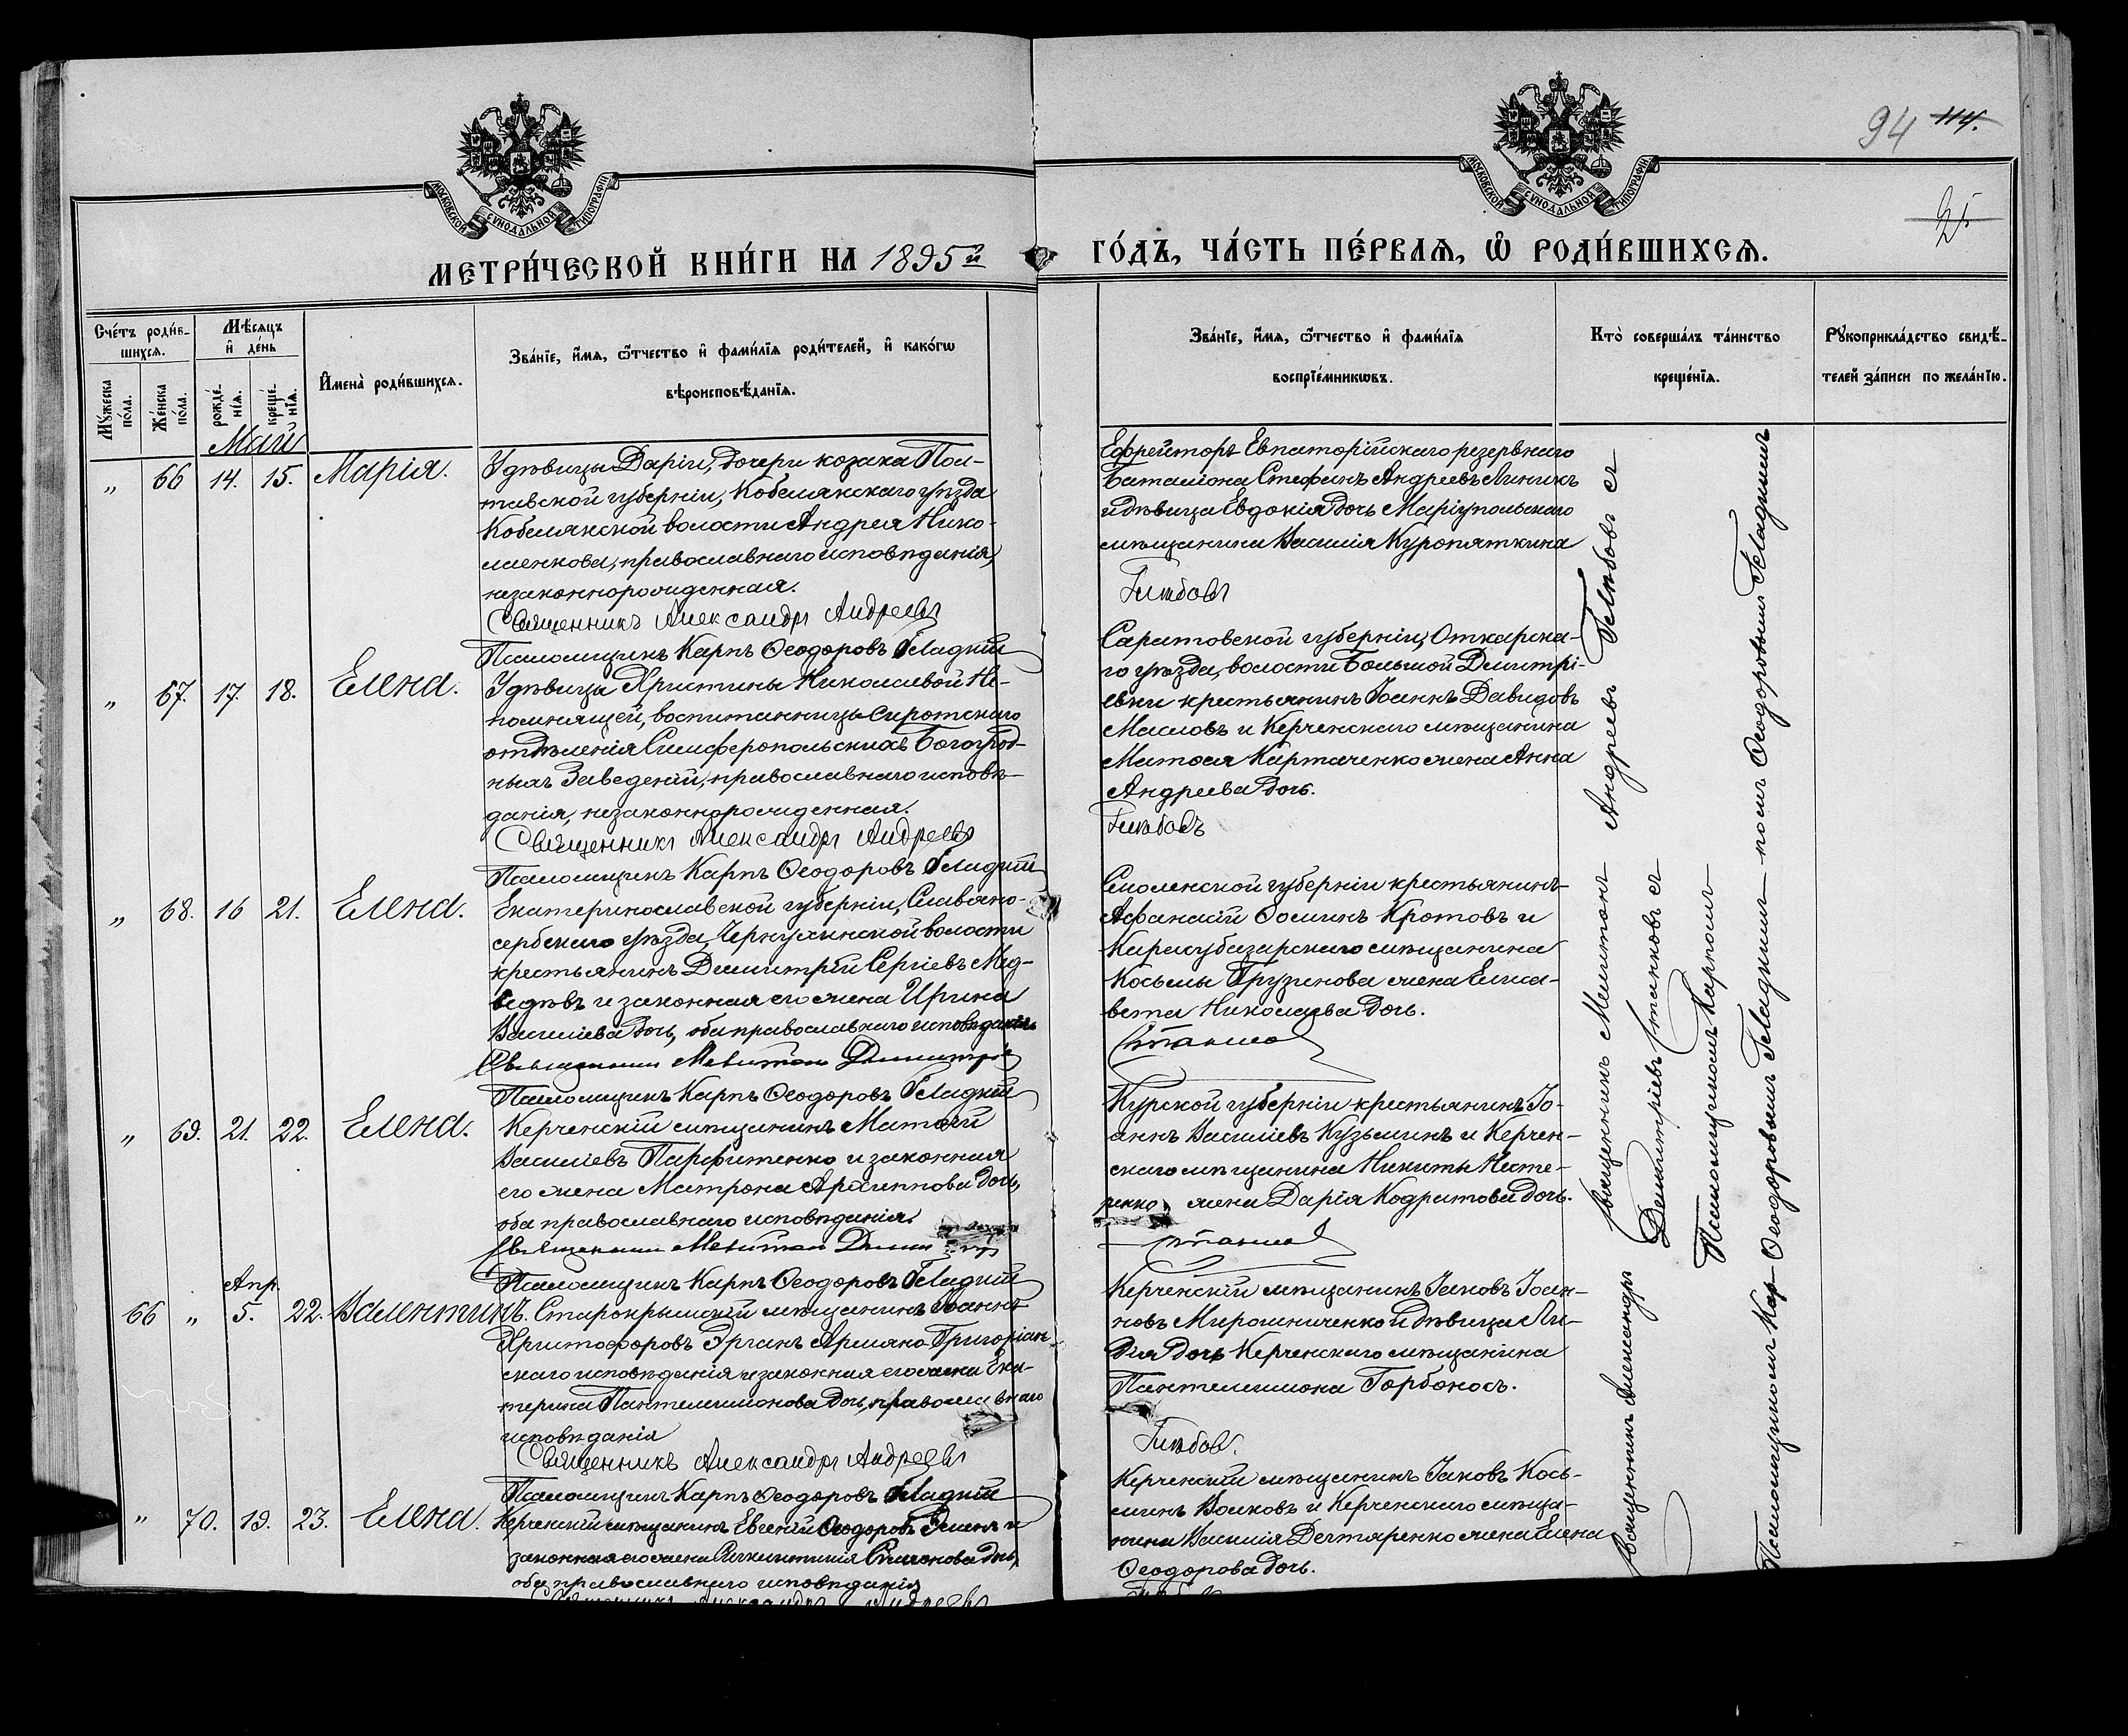 94 114.
25
МОСКОВСКОЙ СѴНОДАЛЬНОЙ ТИПОГРАФІИ
МОСКОВСКОЙ СѴНОДАЛЬНОЙ ТИПОГРАФІИ
МЕТРИ́ЧЕСКОЙ КНИ́ГИ НА 1895й
ГО́ДЪ, ЧА́СТЬ ПЕ́РВАѦ, Ѡ РОДИ́ВШИХСѦ.
Сче́тъ роди́в-
шихсѧ.
Мꙋ́жеска по́ла.
Же́нска по́ла.
Мѣ́сѧцъ
и де́нь
рожде́-
нїѧ.
креще́-
нїѧ.
Имена̀ роди́вшихсѧ.
Зва́нїе, и́мѧ, ѻ́тчество и фами́лїѧ роди́телей, и како́гѡ
вѣроисповѣ́данїѧ.
Зва́нїе, и́мѧ, ѻ́тчество и фами́лїѧ
воспрїе́мникѡвъ.
Кто̀ соверша́лъ та́инство
креще́нїѧ.
Рꙋкоприкла́дство свидѣ́-
телей за́писи по жела́нїю.
Май
„ 66 14. 15. Марія.
У дѣвицы Даріи, дочери козака Пол-
тавской губерніи, Кобелякскаго уѣзда
Кобелякской волости Андрея Нико-
лаенкова, православнаго исповѣданія,
незаконнорожденная.
Священникъ Александръ Андреевъ
Псаломщикъ Карпъ Ѳеодоровъ Гладкій
Ефрейторъ Евпаторійскаго резервнаго
баталіона Стефанъ Андреевъ Линикъ
и дѣвица Евдокія дочь Маріупольскаго
мѣщанина Василія Куропяткина
Глѣбовъ
„ 67. 17. 18. Елена.
У дѣвицы Христины Николаевой Не-
помнящей, воспитанницы Сиротскаго
отдѣленія Симферопольскихъ Богоугод-
ныхъ Заведеній, православнаго исповѣ-
данія, незаконнорожденная.
Священникъ Александръ Андреевъ
Псаломщикъ Карпъ Ѳеодоровъ Гладкій
Саратовской губерніи, Аткарска-
го уѣзда, волости Большой Дмитрі-
евки крестьянинъ Іоаннъ Давидовъ
Масловъ и Керченскаго мѣщанина
Матѳея Картаченко жена Анна
Андреева дочь.
Глѣбовъ
„ 68. 16 21. Елена.
Екатеринославской губерніи, Славяно-
сербскаго уѣзда, Чернухинской волости
крестьянинъ Димитрій Сергіевъ Мед-
ведѣвъ и законная его жена Ирина
Васильева дочь, оба православнаго исповѣданія
Псаломщикъ Карпъ Ѳеодоровъ Гладкій
Смоленской губерніи крестьянинъ
Аѳанасій Ѳоминъ Кротовъ и
Карасубазарскаго мѣщанина
Косьмы Грузинова жена Елиса-
вета Николаева дочь.
„ 69. 21. 22. Елена.
Керченскій мѣщанинъ Матѳій
Василіевъ Парфитенко и законная
его жена Матрона Архиппова дочь,
оба православнаго исповѣданія.
Псаломщикъ Карпъ Ѳеодоровъ Гладкій
Курской губерніи крестьянинъ Іо-
аннъ Василіевъ Кузьминъ и Керчен-
скаго мѣщанина Никиты Несте-
ренко жена Дарія Кодратова дочь.
Апр.
66 „ 5. 22. Валентинъ.
Старокрымскій мѣщанинъ Іоаннъ
Христофоровъ Эрганъ Армяно-Григоріан-
скаго исповѣданія и законная его жена Ека-
терина Пантелеимонова дочь, православнаго
исповѣданія
Священникъ Александръ Андреевъ
Псаломщикъ Карпъ Ѳеодоровъ Гладкій
Керченскій мѣщанинъ Іаковъ Іоан-
новъ Мирошниченко и дѣвица Ли-
дія дочь Керченскаго мѣщанина
Пантелеимона Горбоносъ.
Глѣбовъ.
„ 70. 19. 23. Елена.
Керченскій мѣщанинъ Евгеній Ѳеодоровъ и
законная его жена Симонова дочь,
оба православнаго исповѣданія
Священникъ Александръ Андреевъ
Керченскій мѣщанинъ Іаковъ Кось-
минъ Волковъ и Керченскаго мѣща-
нина Василія Дегтяренко жена Елена
Ѳеодорова дочь.
Священникъ Александръ
Священникъ Милитонъ Андреевъ Глѣбовъ съ
Димитріевъ Станковъ съ
Псаломщикомъ Карпомъ
Псаломщикомъ Кар Ѳеодоровымъ Гладкимъ помъ Ѳеодоровымъ Гладкимъ